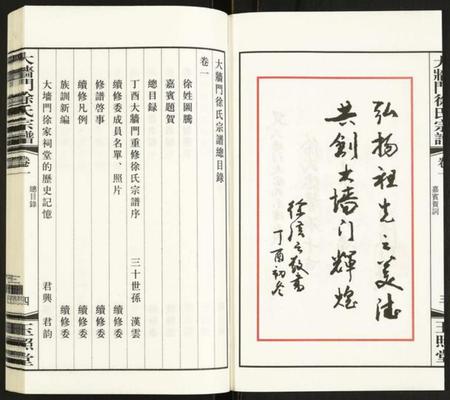 大牆門徐氏宗譜
卷一
嘉賓賀詞
三
玉照堂
弘扬祖先之美德
共創大墙门輝煌
敬書
丁酉初冬
大牆門徐氏宗譜總目錄
卷一
徐姓圖騰
嘉賓題賀
總目錄
丁酉大牆門重修徐氏宗譜序 三十世孫 漢雲
續修委成員名單、照片 續修委
修譜啓事 續修委
續修凡例 續修委
族訓新編 續修委
大墻門徐家祠堂的歷史記憶 君興 君韵
大牆門徐氏宗譜
卷一
總目錄
四
玉照堂